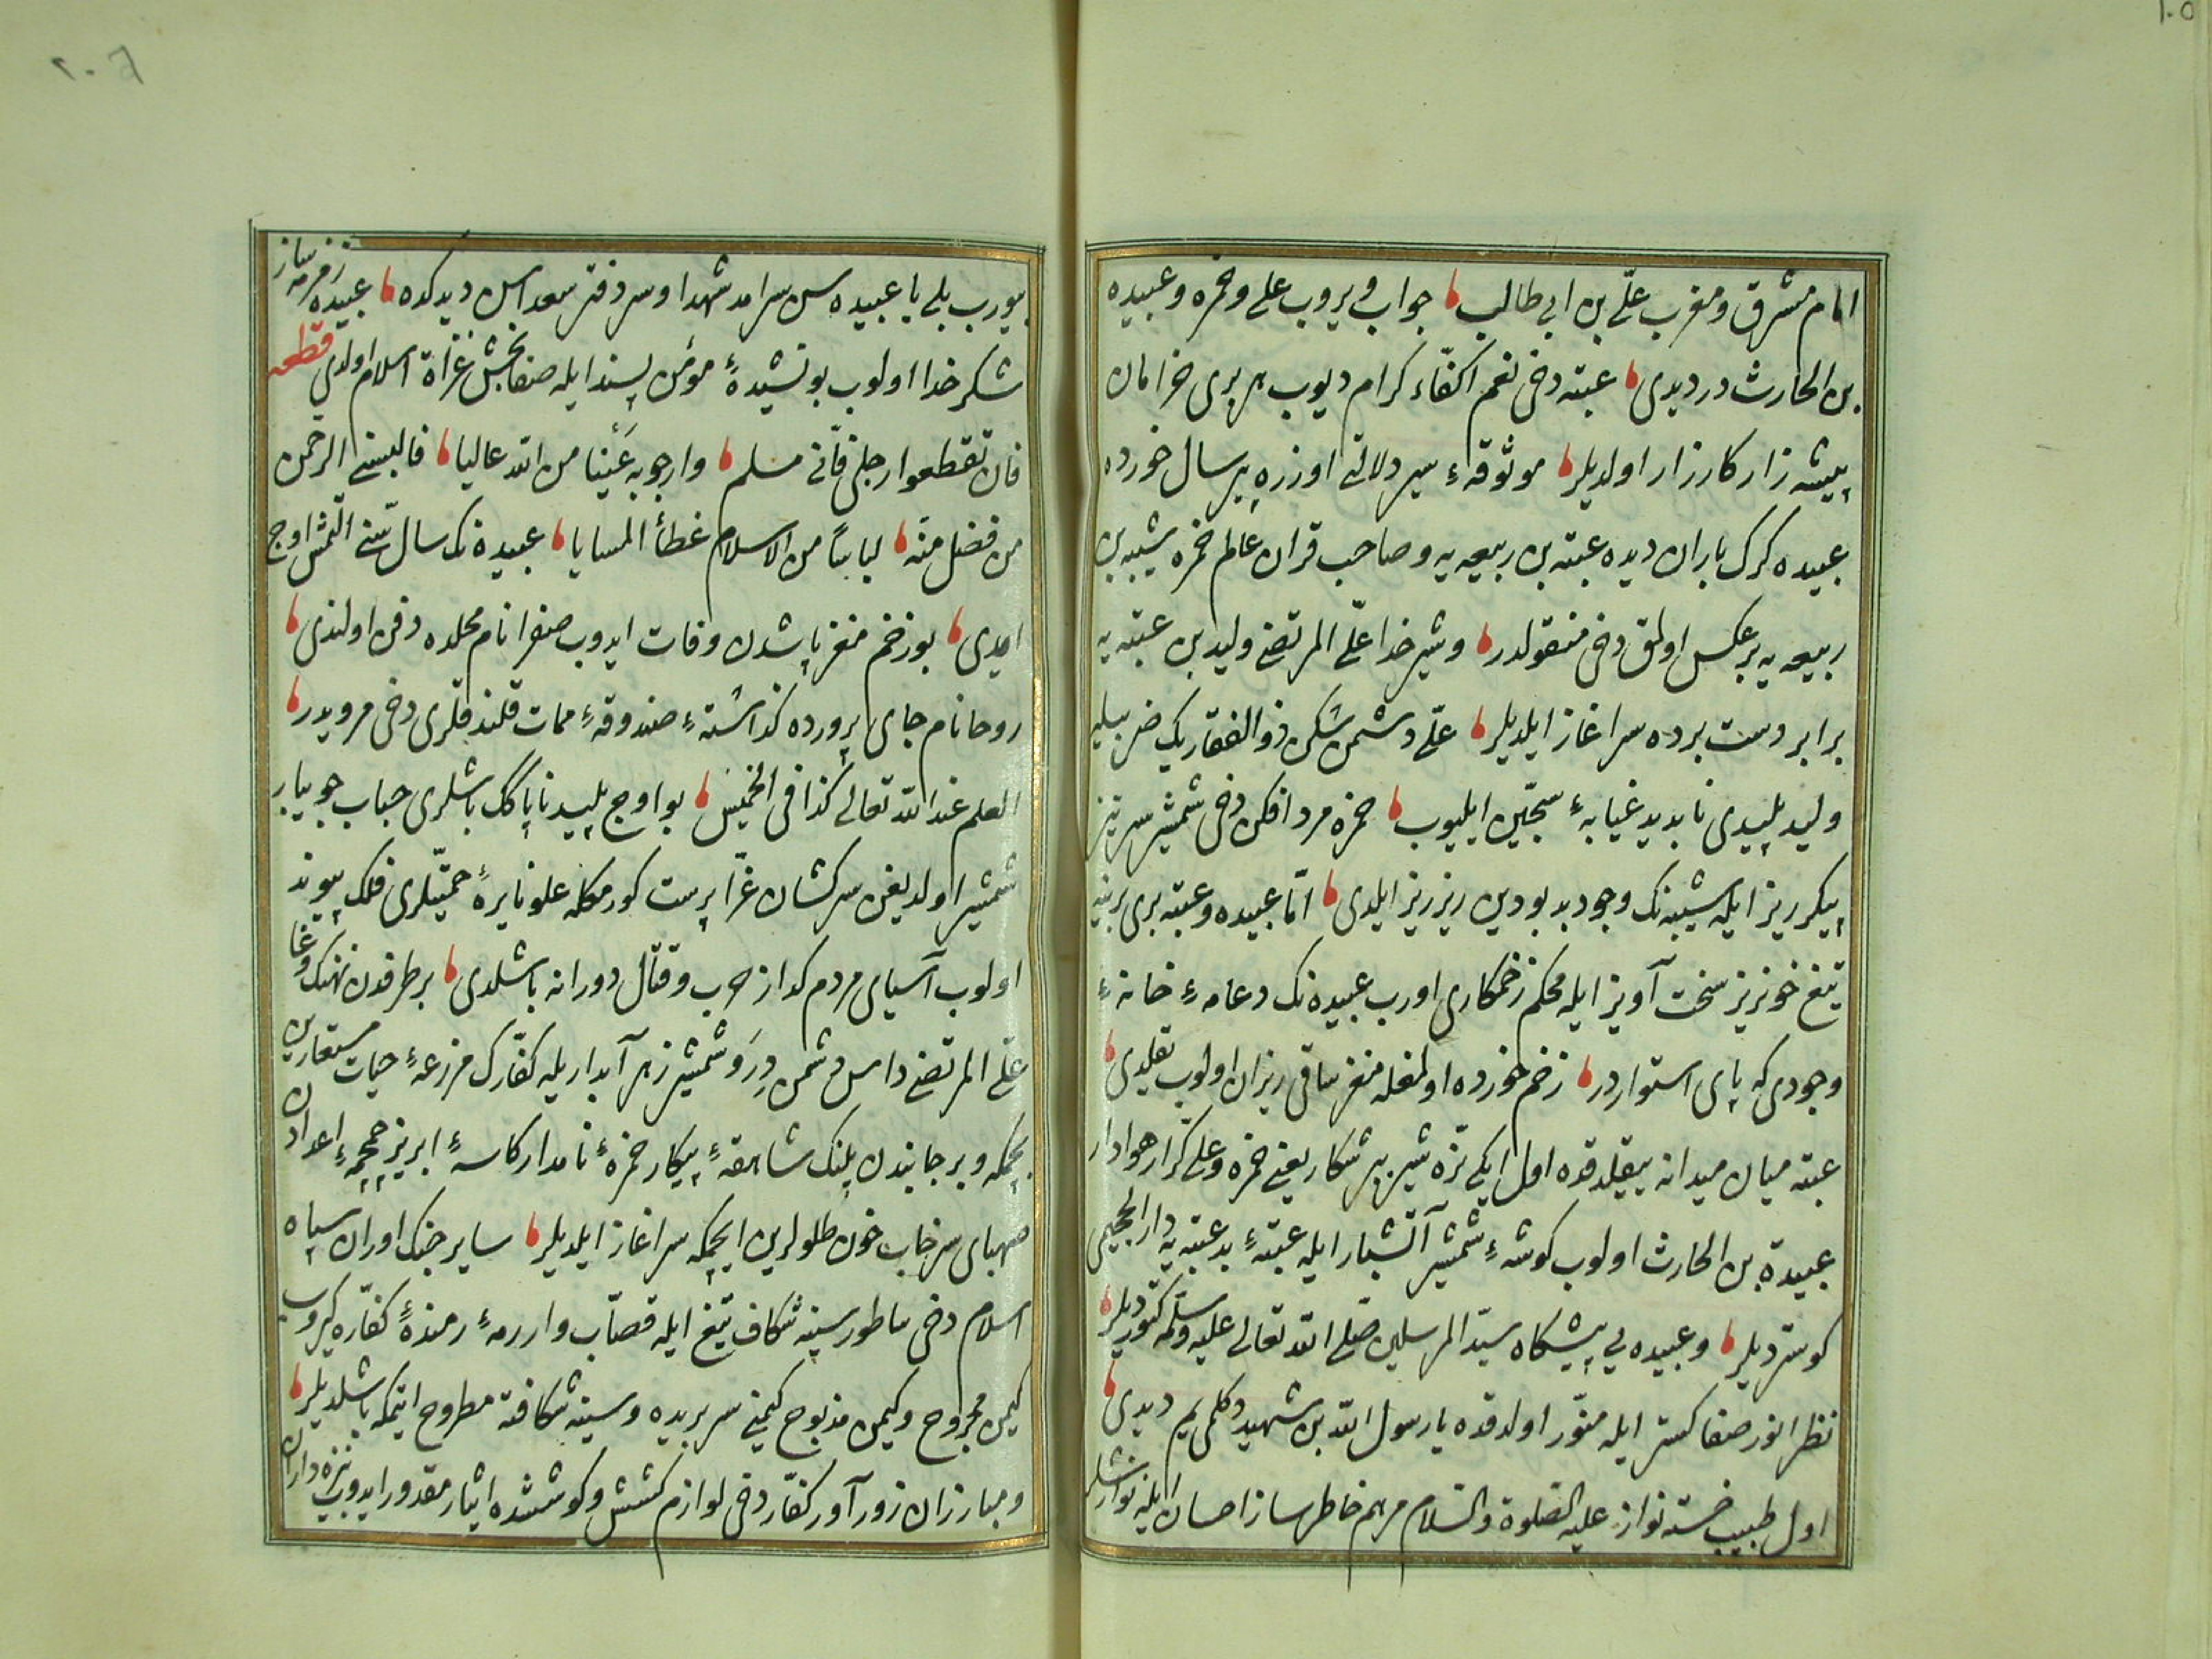 امام مشرق ومغرب علّی بن ابی طالب جواب ویروب علی وحمزه وعبیده
بن الحارث در دیدی عتبه دخی نعم اکفّاء کرام دیوب هر بری خرامان
پیشه زار کارزار اولدیلر موثوقهٔ سیر دلالتی اوزره پیر سال خورده
عبیده کرک باران دیده عتبه بن ربیعه یه وصاحب قران عالم حمزه شیبه بن
ربیعه یه برعکس اولمق دخی منقولدر وشیر خدا علّی المرتضی ولید بن عتبه یه
برابر دست برده سراغاز ایلدیلر علّی دشمن شکن ذوالفقار یک ضربیله
ولید پلیدی نابدید غیابهٔ سجّین ایلیوب حمزه مرد افکن دخی شمشیر سرتیز
پیکر ریز ایله شیبه نک وجود بد بودین ریز ریز ایلدی امّا عبیده وعتبه بری برینه
تیغ خونریز سخت آویز ایله محکم زخمکاری اورب عبیده نک دعامهٔ خانهٔ
وجودی که پای استواردر زخم خورده اولمغله مغز ساقی ریزان اولوب یقلدی
عتبه میان میدانه ییقلدقده اول ایکی نرّه شیر ببر شکار یعنی حمزه وعلی کرّار هوادار
عبیدة بن الحارث اولوب کوشهٔ شمشیر آتشبار ایله عتبهٔ بد عتبه یه دار الجحیمی
کوستردیلر وعبیده یی پیشکاه سیّد المرسلین صلّی الله تعالی علیه وسلّمه کتوردیلر
نظر انور صفا کستر ایله منوّر اولدقده یا رسول الله بن شهید دکلمی یم دیدی
اول طبیب خسته نواز علیه الصلوة والسّلام مرهم خاطر ساز احسان ایله نوازشلر
بیورب بلی یا عبیده سن سرامد شهدا وسر دفتر سعداسن دیدکده عبیده زمزمه ساز
شکر خدا اولوب بو نشیدهٔ مؤمن پسند ایله صفابخش غزاة اسلام اولدی قطعه
فان تقطعوا رجلی فانّی مسلم وارجو به عَیْنا من الله عالیا فالبسنی الرحمن
من فضل منّه لباسًا من الاسلام غطّأ المسایا عبیده نک سال سنّی التمش اوج
ایدی بو زخم مغز پاشدن وفات ایدوب صفرا نام محلده دفن اولندی
روحا نام جای پرورده کذاشتهٔ صندوقهٔ ممات قلندقلری دخی مرویدر
العلم عند الله تعالی کذا فی الخمیس بو اوج پلید ناپاکک باشلری حباب جویبار
شمشیر اولدیغن سرکشان غرّا پرست کورمکله علو نایرهٔ حمیّتلری فلک پیوند
اولوب آسیای مردم کداز حرب وقتال دورانه باشلدی بر طرفدن نهنک وغا
علّی المرتضی داس دشمن دِرَو شمشیر زهر آبداریله کفّارک مزرعهٔ حیات مستعارین
بچمکه وبر جانبدن پلنک شاهقهٔ پیکار حمزهٔ نامدار کاسهٔ ابریز جمجمهٔ اعدادن
صهبای سرخاب خون طلولرین ایچمکه سراغاز ایلدیلر سایر جنک اوران سپاه
اسلام دخی ساطور سینه شکاف تیغ ایله قصّاب وار رمهٔ رمندهٔ کفّاره کیروب
کیمن مجروح وکیمن مذبوح کیمنی سربریده وسینه شکافته مطروح ایتمکه باشلدیلر
ومبارزان زور آور کفّار دخی لوازم کشش وکوششده ایثار مقدور ایدوب نیزه داران